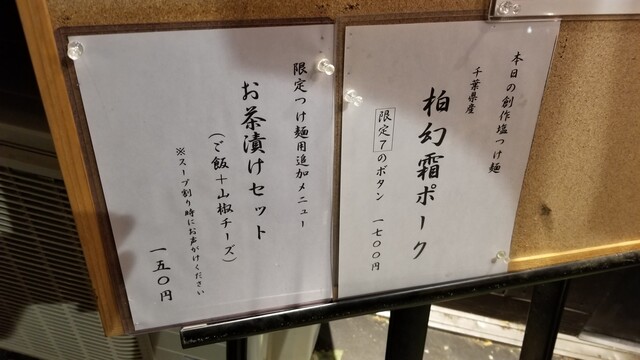 本日の創作塩つけ麺
千葉県産
柏幻霜ポーク
限定7のボタン 一七〇〇円
限定つけ麺用追加メニュー
お茶漬けセット
(ご飯＋山椒チーズ)
※スープ割り時にお声がけください
一五〇円